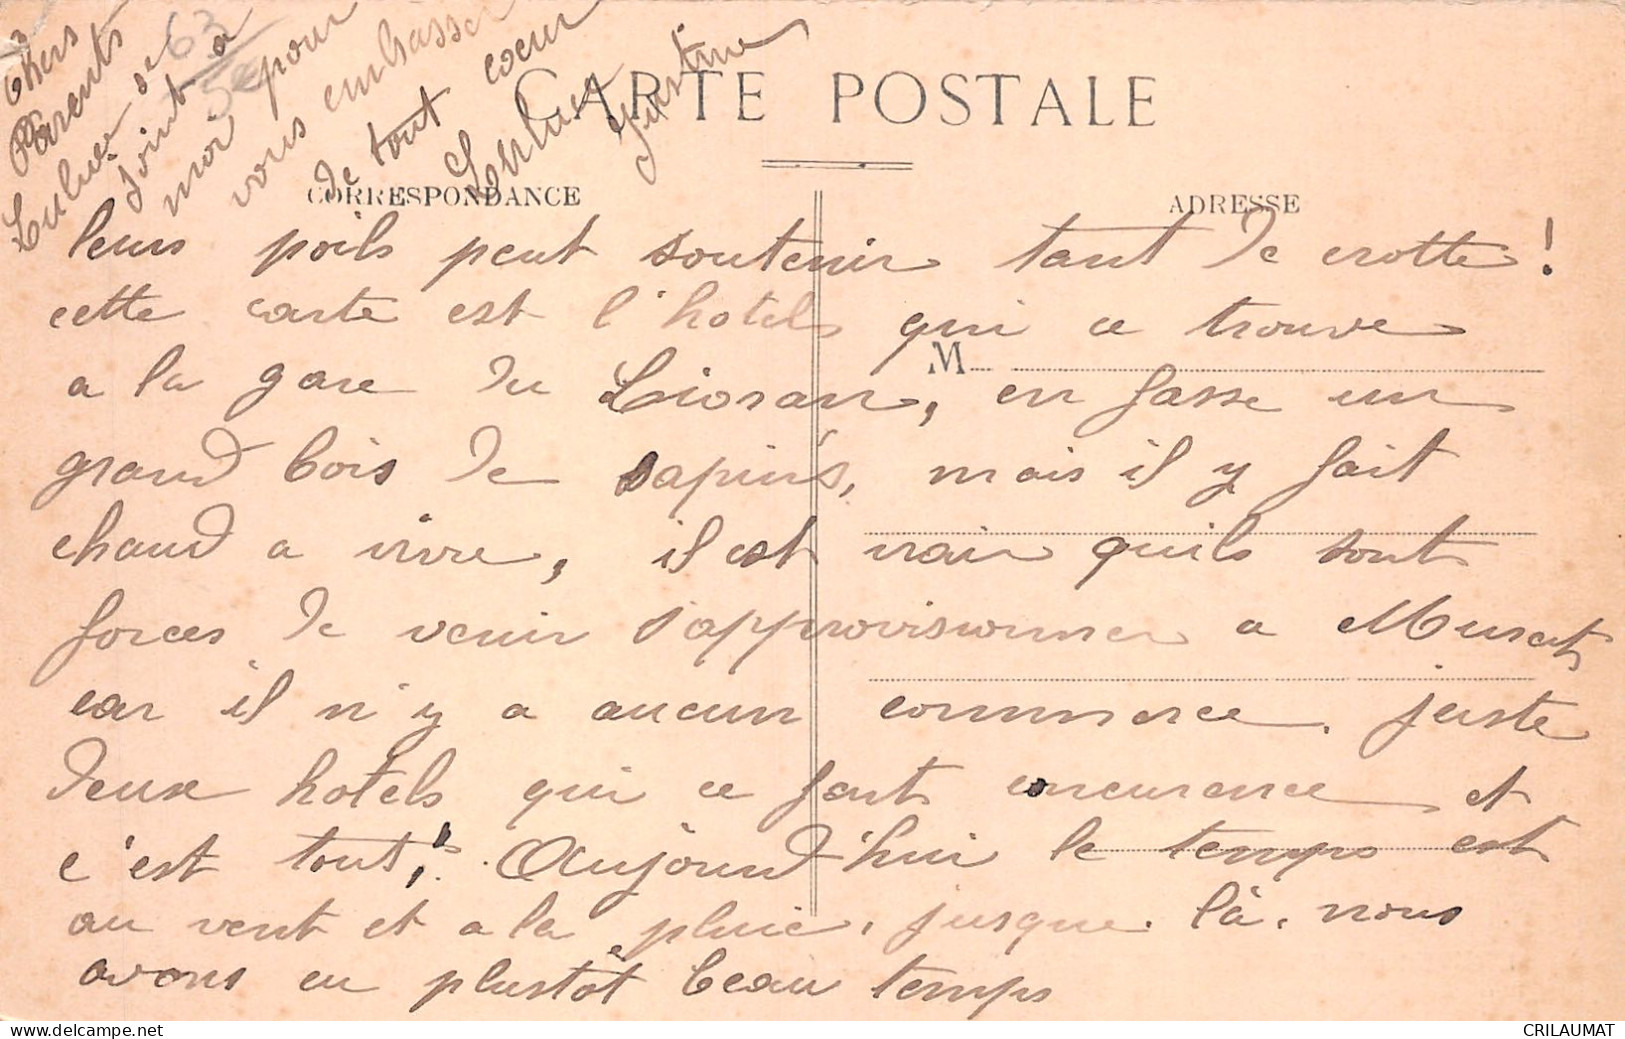 Chers
Parents
se
joint a
moi pour
vous embrasser
de tout coeur
Justine
63
CARTE POSTALE
CORRESPONDANCE
ADRESSE
M
leurs poils peut soutenir tant de crotte !
cette carte est l'hotel qui ce trouve
a la gare du Lioran, en fasse un
grand bois de sapins, mais il y fait
chaud a vivre, il est vrai quils sont
forces de venir s'approvisionner a Murat
car il n'y a aucun commerce. juste
deux hotels qui ce font concurence et
c'est tout, Aujourd'hui le temps est
au vent et a la pluie, jusque là. nous
avons eu plustôt beau temps
CRILAUMAT